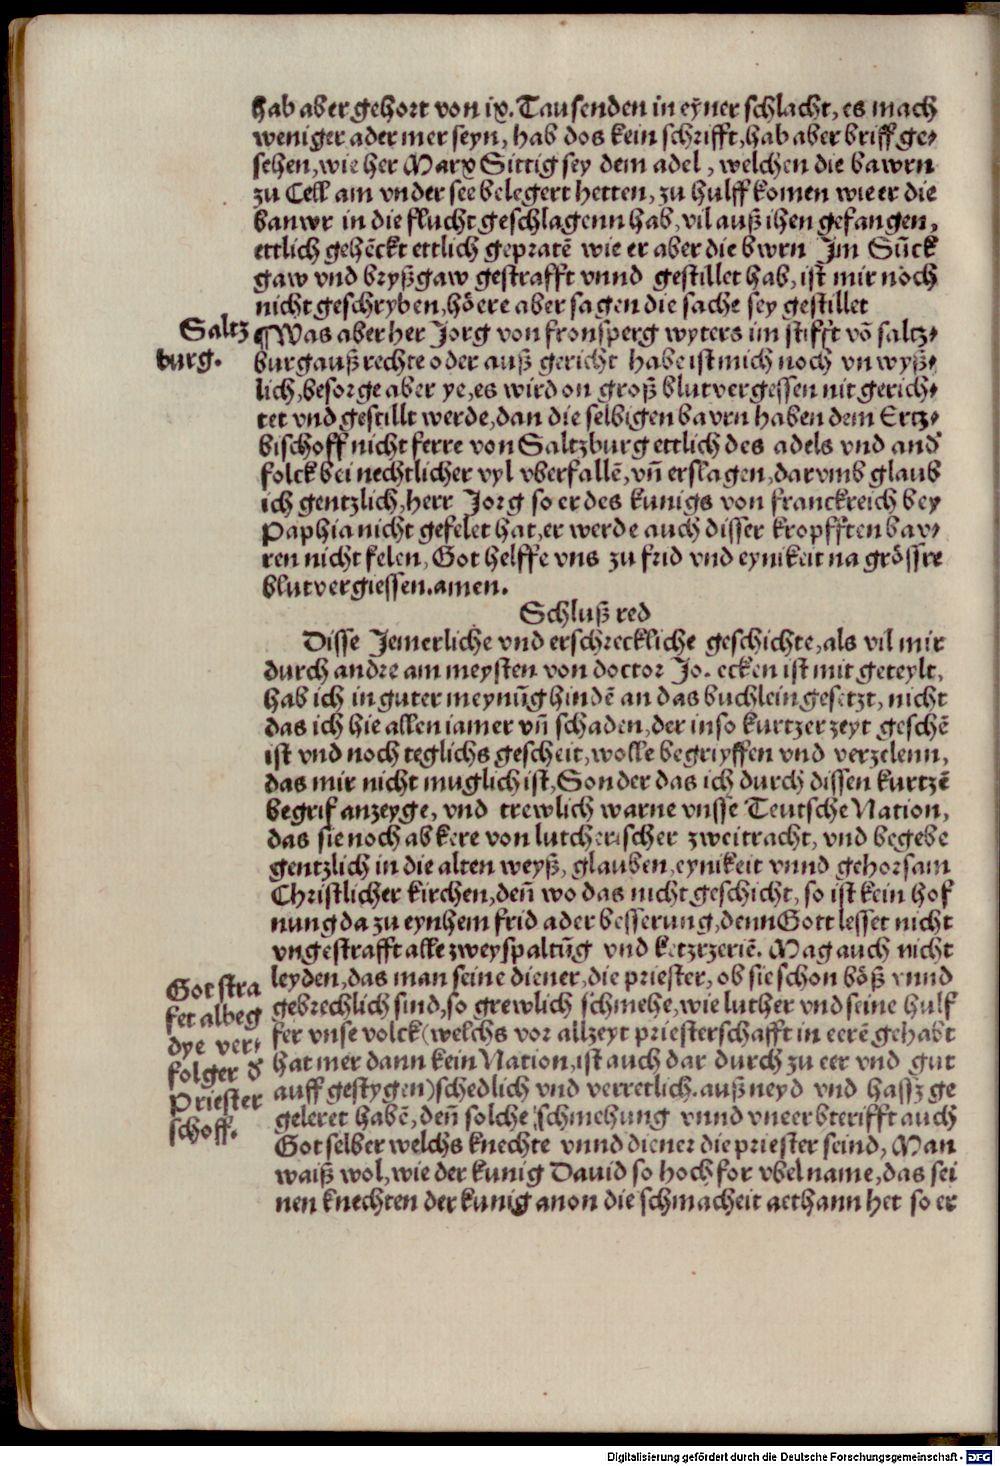 hab aber gehort von ix. Tausenden in eyner schlacht, es mach
weniger ader mer seyn, hab dos kein schrifft, hab aber briff ge⸗
sehen, wie her Marx Sittig sey dem adel, welchen die bawrn
zu Cell am vnder see belegert hetten, zu hulff komen wie er die
banwr in die flucht geschlagenn hab, vil auß ihen gefangen,
ettlich gehēckt ettlich gepratē wie er aber die bwrn Jm Sūck
gaw vnd bryßgaw gestrafft vnnd gestillet hab, ist mir noch
nicht geschryben, höere aber sagen die sache sey gestillet
Saltz
burg.
¶Was aber her Jorg von fronsperg wyters im stifft vō saltz⸗
burg auß rechte oder auß gericht habe ist mich noch vn wyß⸗
lich, besorge aber ye, es wird on groß blutvergessen nit gerich⸗
tet vnd gestillt werde, dan die selbigen bavrn haben dem Ertz⸗
bischoff nicht ferre von Saltzburg ettlich des adels vnd andˀ
folck bei nechtlicher vyl vberfallē, vn̄ erslagen, darvmb glaub
ich gentzlich, herr Jorg so er des kunigs von franckreich bey
Paphia nicht gefelet hat, er werde auch disser kropfften bav⸗
ren nicht felen, Got helffe vns zu frid vnd eynikeit na grössre
blutvergiessen. amen.
Schluß red
Disse Jemerliche vnd erschreckliche geschichte, als vil mir
durch andre am meysten von doctor Jo. ecken ist mit geteylt,
hab ich in guter meynūg hindē an das buchlein gesetzt, nicht
das ich hie allen iamer vn̄ schaden, der in so kurtzer zeyt geschē
ist vnd noch teglichs gescheit, wolle begriyffen vnd verzelenn,
das mir nicht muglich ist, Sonder das ich durch dissen kurtzē
begrif anzeyge, vnd trewlich warne vnsse Teutsche Nation,
das sie noch abkere von lutcherischer zweitracht, vnd begebe
gentzlich in die alten weyß, glauben, eynikeit vnnd gehorsam
Christlicher kirchen, den̄ wo das nicht geschicht, so ist kein hof
nung da zu eynhem frid ader besserung, denn Gott lesset nicht
vngestrafft alle zweyspaltūg vnd ketzrzeriē. Mag auch nicht
leyden, das man seine diener, die priester, ob sie schon böß vnnd
gebrechlich sind, so grewlich schmehe, wie luther vnd seine hulf
fer vnse volck (welchs vor allzeyt priesterschafft in eerē gehabt
hat mer dann kein Nation, ist auch dar durch zu eer vnd gut
auff gestygen) schedlich vnd verretlich. auß neyd vnd hassz ge
geleret habē, den̄ solche schmehung vnnd vneer bterifft auch
Got selber welchs knechte vnnd diener die priester seind, Man
waiß wol, wie der kunig Dauid so hoch for vbel name, das sei
nen knechten der kunig anon die schmacheit gethann het so er
Got stra
fet albeg
dye ver⸗
folger dˀ
Priester
schoff.
Digitalisierung gefördert durch die Deutsche Forschungsgemeinschaft - DFG